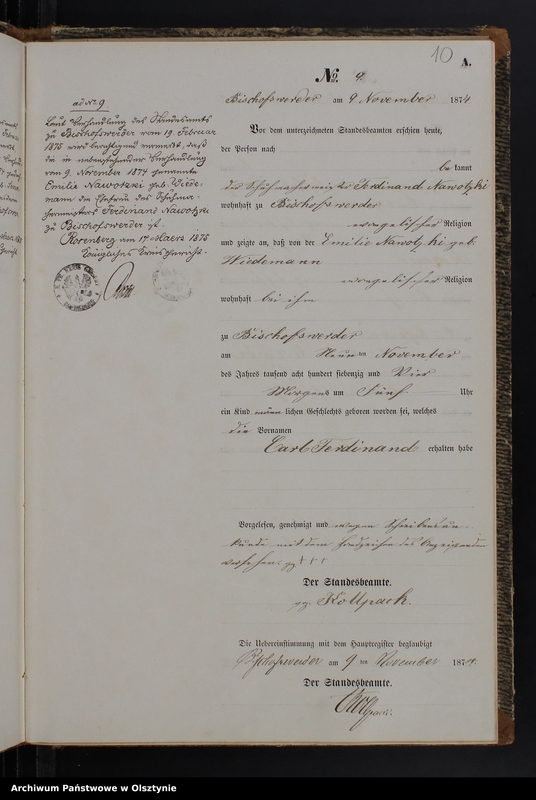 10
A.
No. 9.
Bischofswerder am 9 November 1874
Vor dem unterzeichneten Standesbeamten erschien heute,
der Person nach
bekannt
der Schuhmachermeister Ferdinand Nawotzki
wohnhaft zu Bischofswerder
evangelischer Religion
und zeigte an, daß von der Emilie Nawotzki geb.
Wiedemann
evangelischer Religion
wohnhaft bei ihm
zu Bischofswerder
am Neunten November
des Jahres tausend acht hundert siebenzig und Vier
Morgens um Fünf Uhr
ein Kind männlichen Geschlechts geboren worden sei, welches
die Vornamen
Carl Ferdinand erhalten habe
Vorgelesen, genehmigt und wegen Schreibensun-
kunde mit dem Handzeichen des Anzeigenden
versehen. gz. +++
Der Standesbeamte.
gz. Kollpack.
Die Uebereinstimmung mit dem Hauptregister beglaubigt
Bischofswerder am 9 ten November 1874.
Der Standesbeamte.
Kollpack.
ad No. 9
Laut Verhandlung des Standesamts
zu Bischofswerder vom 19. Februar
1875 wird berichtigend vermerkt, daß
die in nebenstehender Verhandlung
vom 9. November 1874 genannte
Emilie Nawotzki geb. Wiede-
mann die Ehefrau des Schuhma-
chermeisters Ferdinand Nawotzki
zu Bischofswerder ist.
Rosenberg am 17 Maerz 1875
Königliches Kreisgericht.
Archiwum Państwowe w Olsztynie